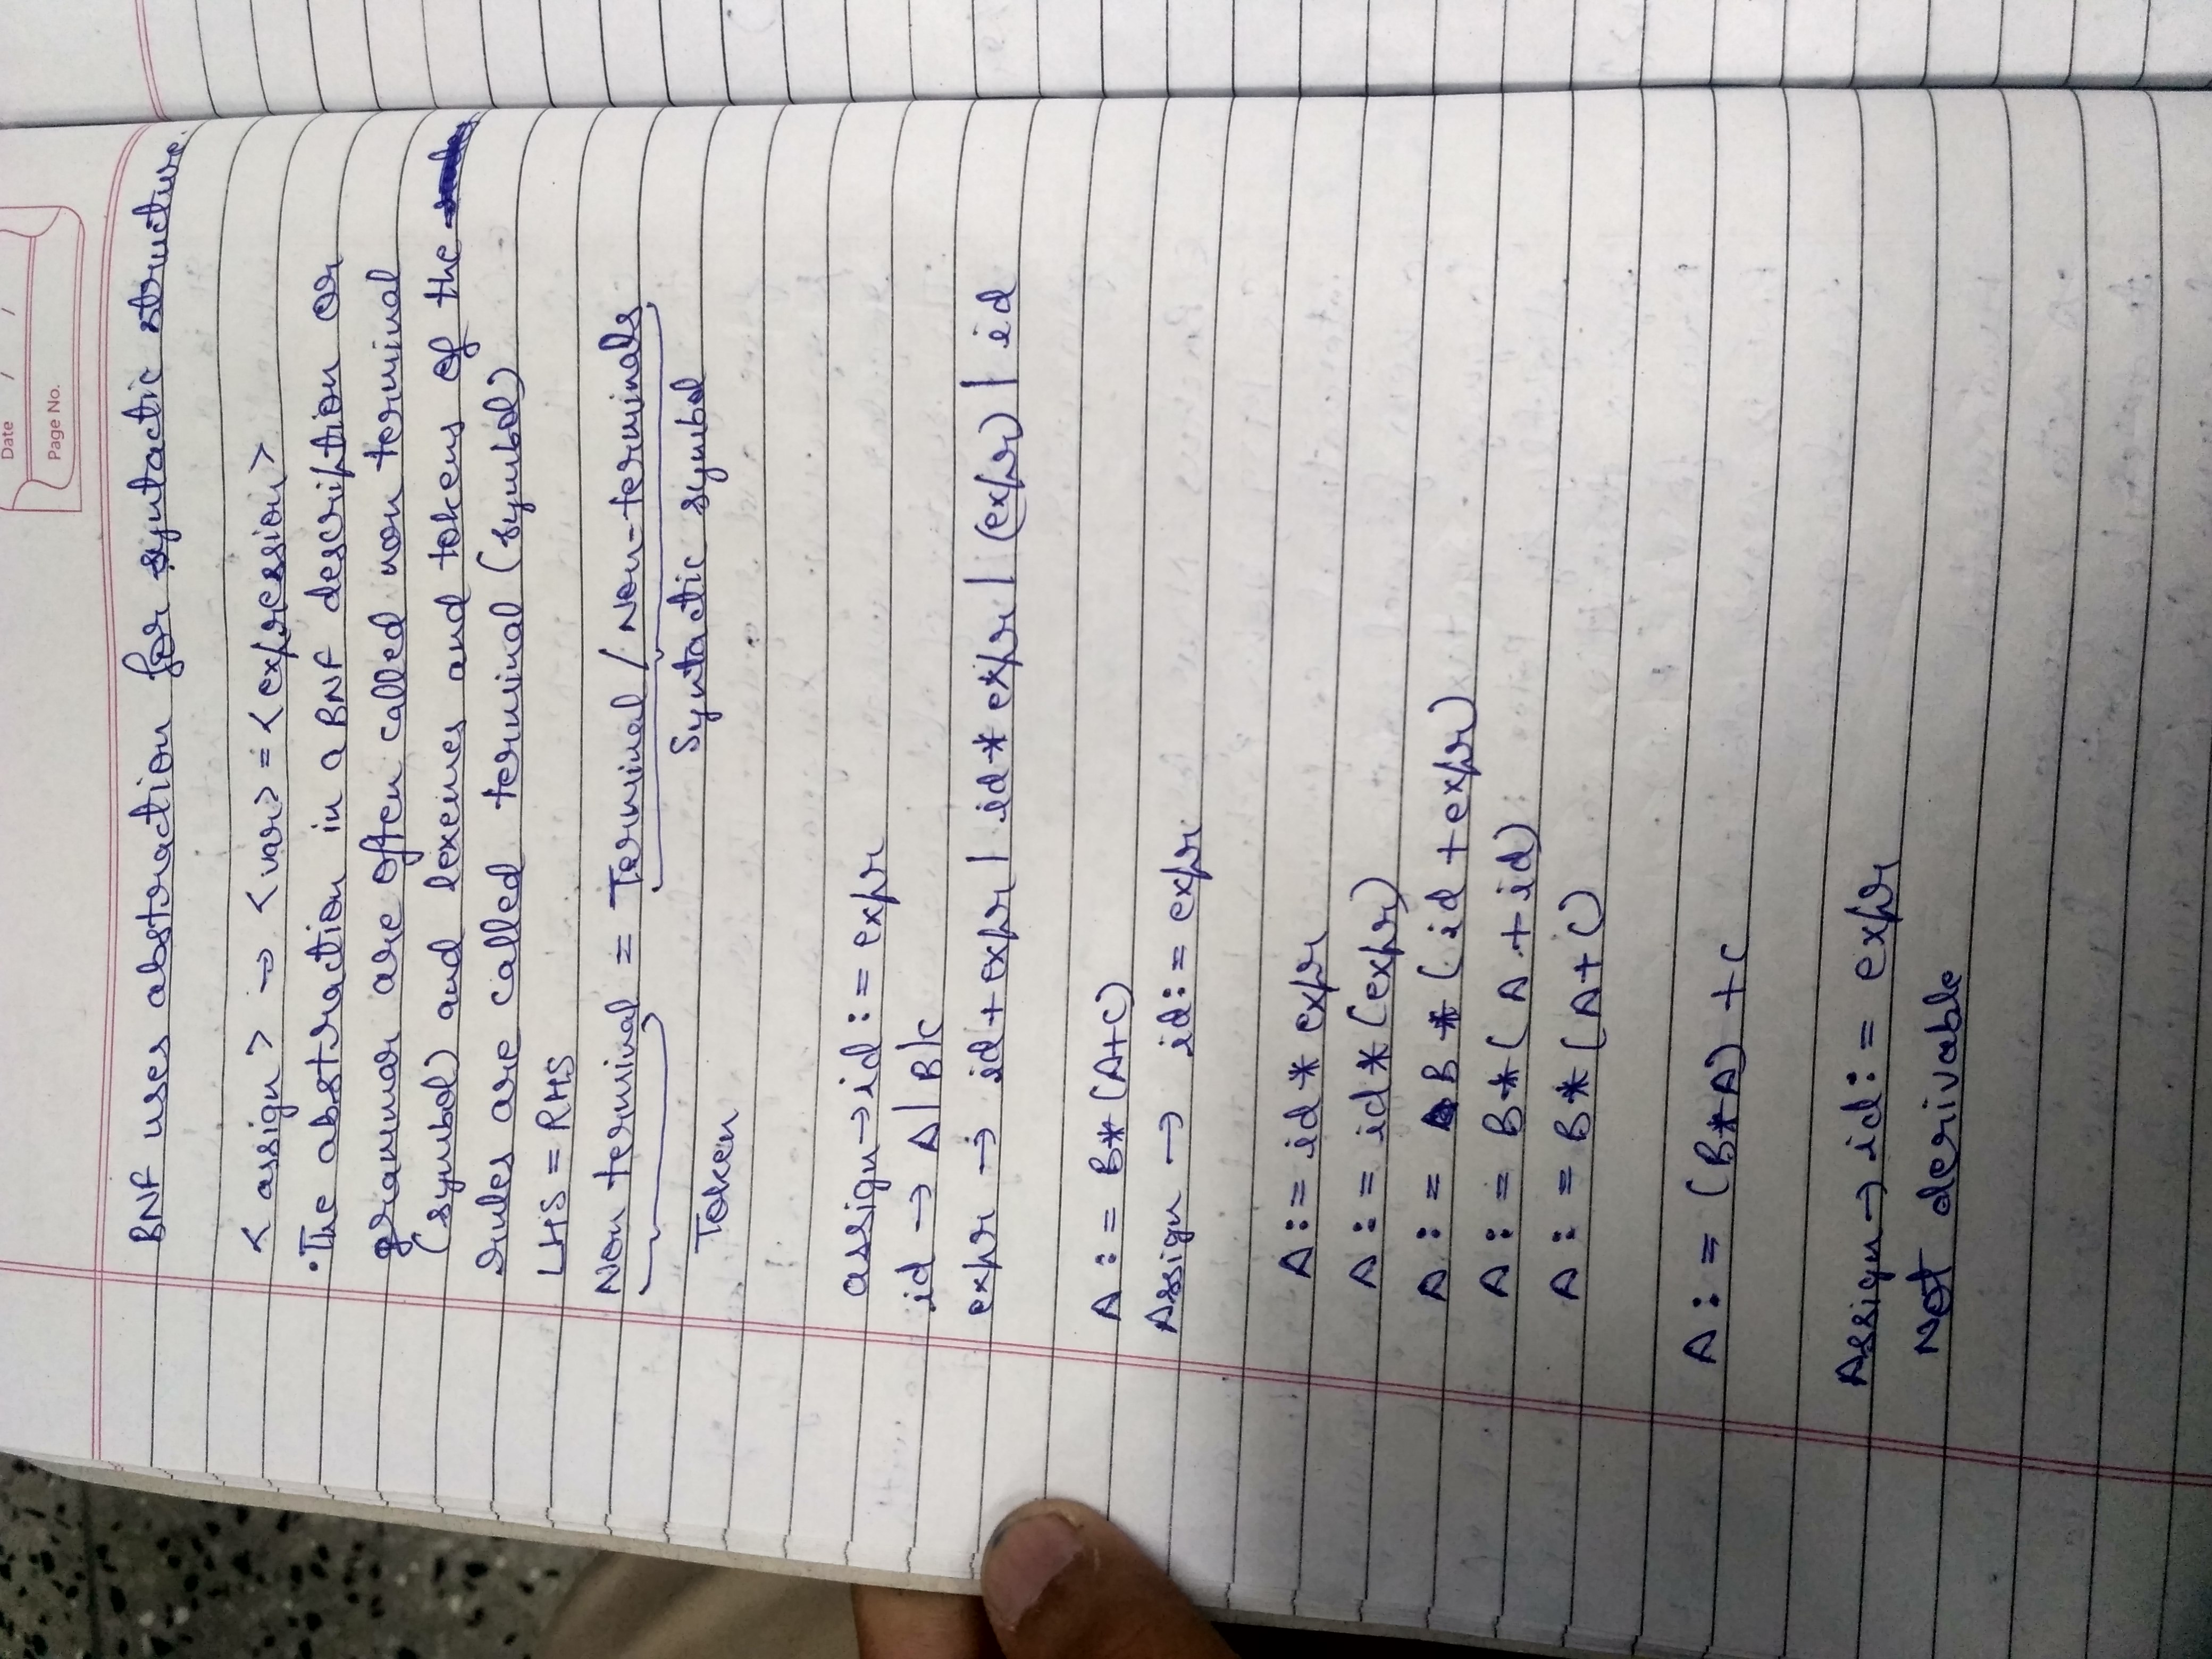 Date / /
Page No.
BNF uses abstraction for syntactic structure.
< assign > → < var > = < expression >
• The abstraction in a BNF description or
grammar are often called non terminal
(symbol) and lexemes and tokens of the
rules are called terminal (symbol)
LHS = RHS
Non terminal = Terminal / Non-terminals
Syntactic symbol
Token
assign → id := expr
id → A | B | C
expr → id + expr | id * expr | (expr) | id
A := B * (A+C)
Assign → id := expr
A := id * expr
A := id * (expr)
A := B * (id + expr)
A := B * (A + id)
A := B * (A + C)
A := (B * A) + C
Assign → id := expr
Not derivable